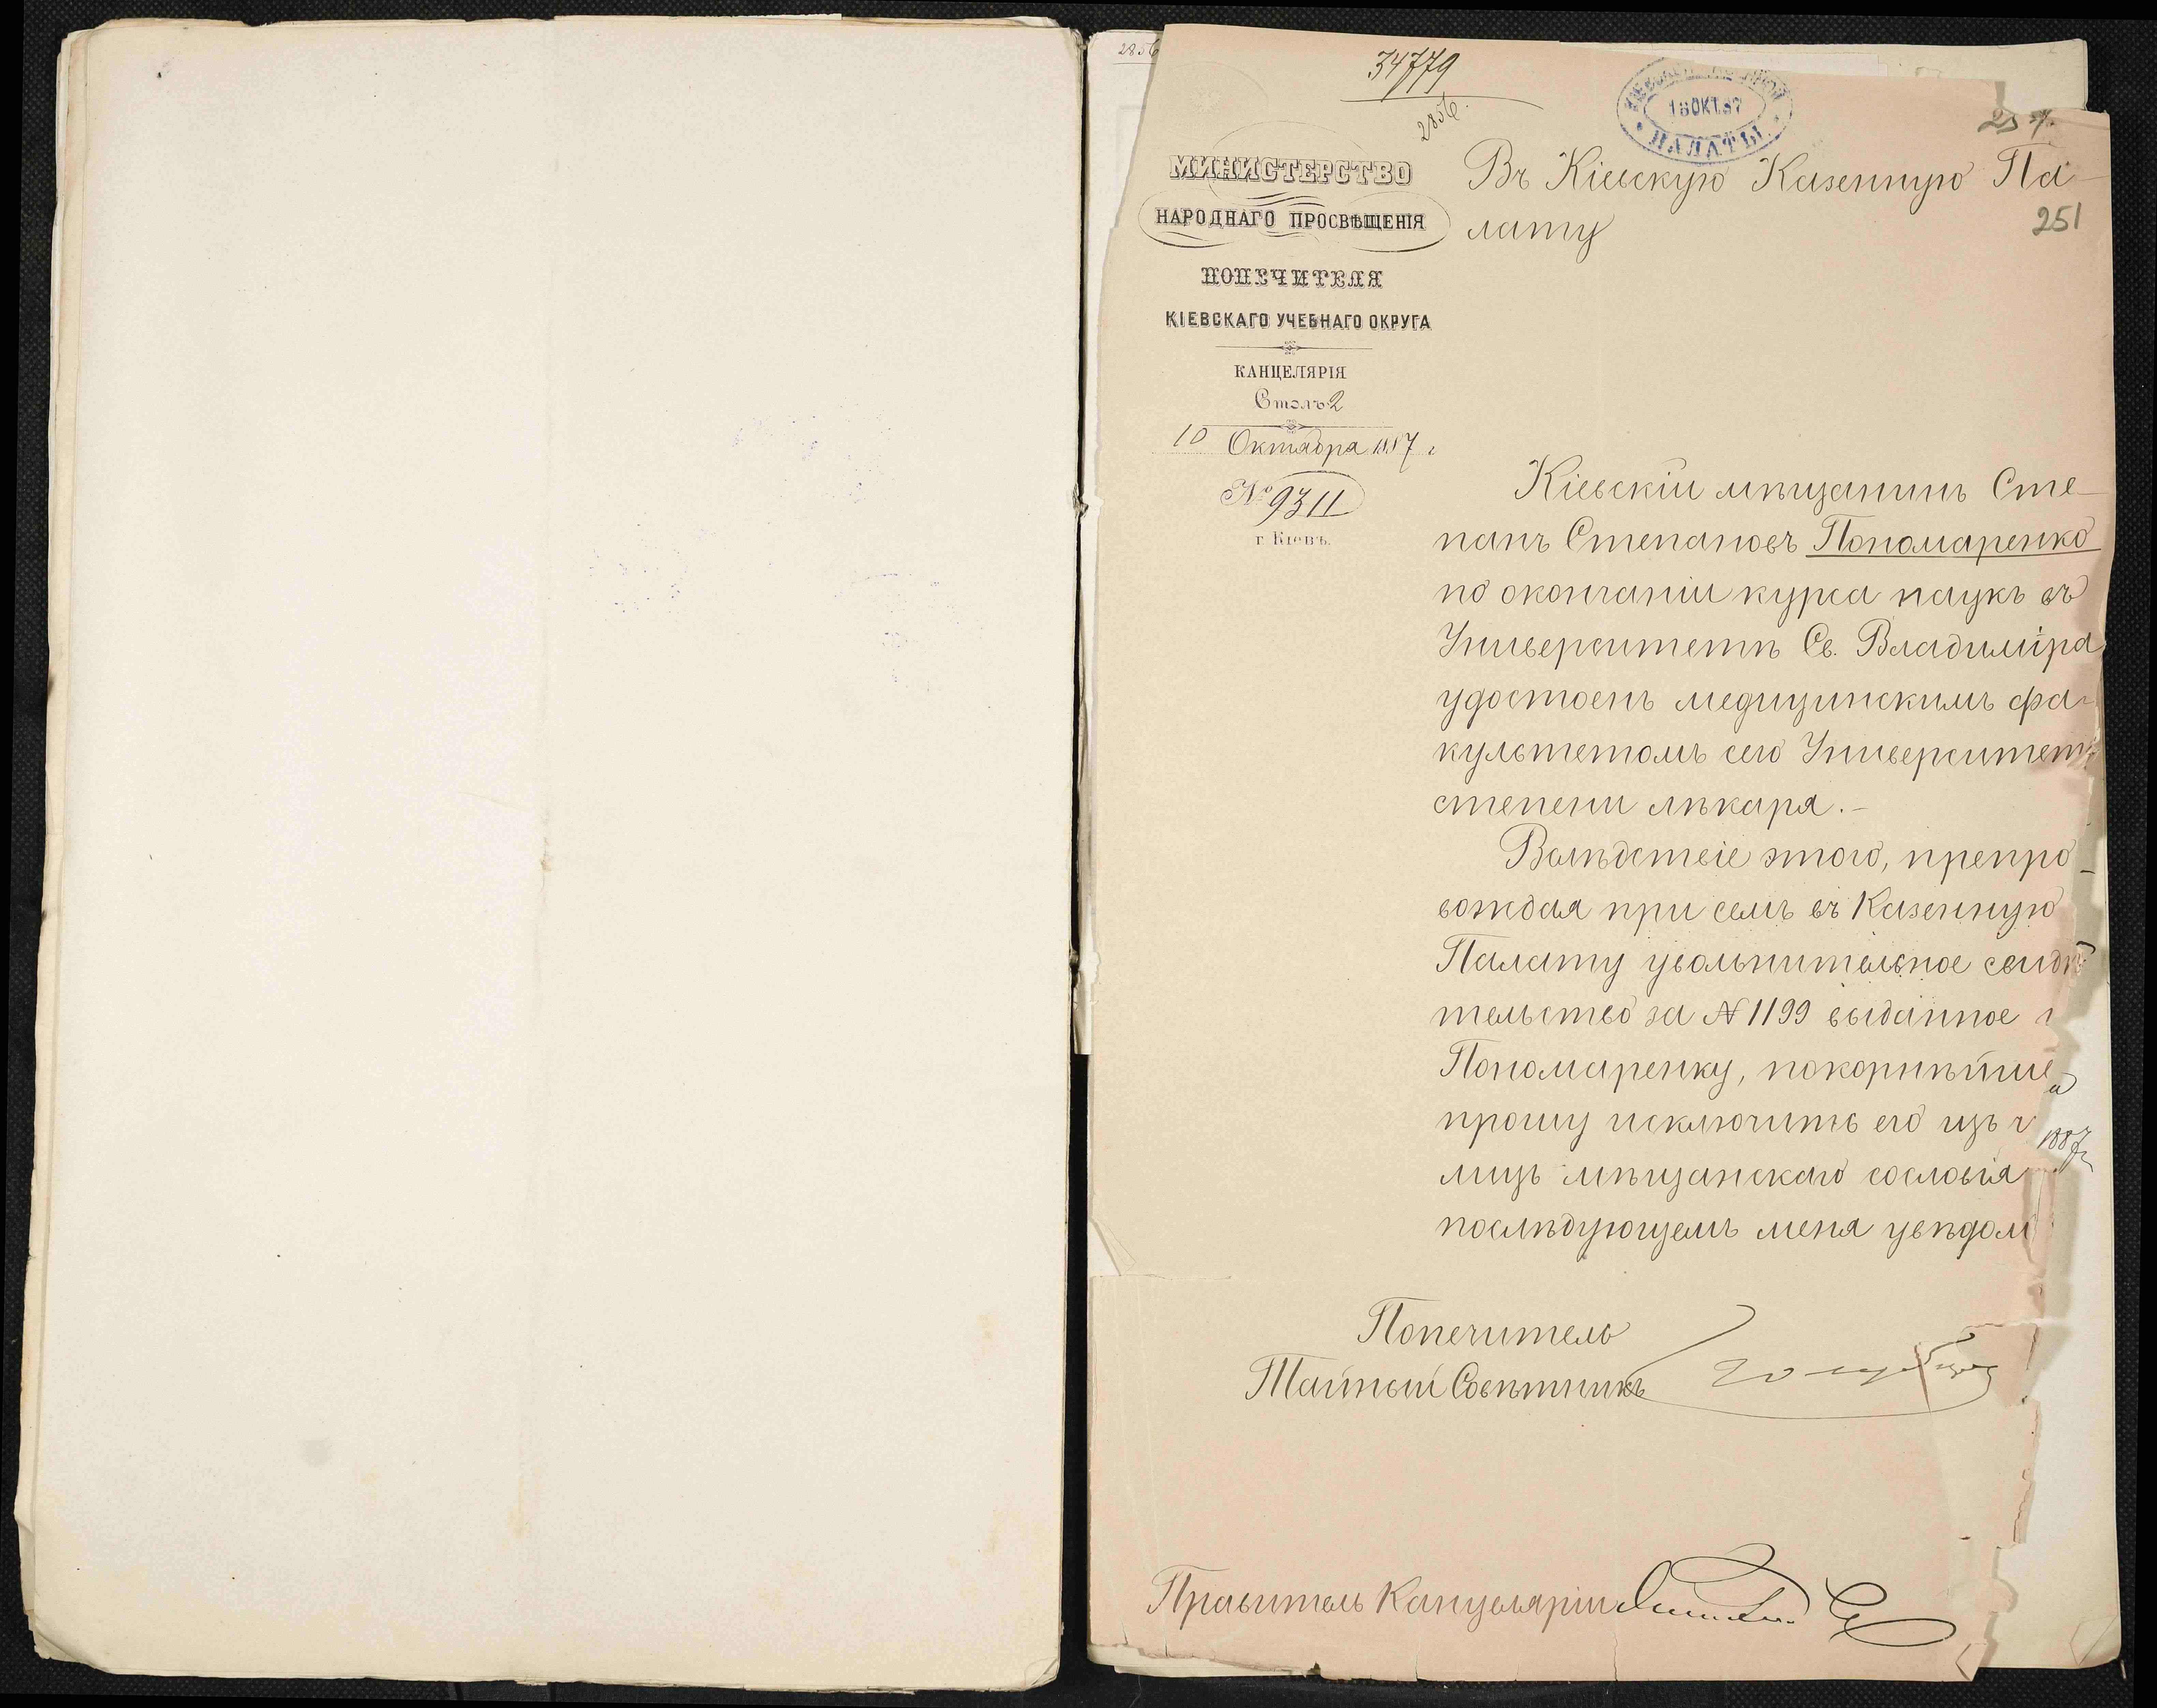 34779
2856
2856.
КІЕВСКОЙ КАЗЕННОЙ
16 ОКТ. 87
ПАЛАТЫ
251
МИНИСТЕРСТВО
НАРОДНАГО ПРОСВѢЩЕНІЯ
ПОПЕЧИТЕЛЯ
КІЕВСКАГО УЧЕБНАГО ОКРУГА
КАНЦЕЛЯРІЯ
Столъ 2
10 Октября 1887 г.
№ 9311
г. Кіевъ.
Въ Кіевскую Казенную Па-
лату
Кіевскій мѣщанинъ Сте-
панъ Степановъ Пономаренко
по окончаніи курса наукъ въ
Университетѣ Св. Владиміра
удостоенъ медицинскимъ фа-
культетомъ сего Университета
степени лѣкаря.-
Вслѣдствіе этого, препро-
вождая при семъ въ Казенную
Палату увольнительное свидѣ
тельство за № 1199 выданное
Пономаренку, покорнѣйше
прошу исключить его изъ ч
лицъ мѣщанскаго сословія
послѣдующемъ меня увѣдом
1887 г.
Попечитель
Тайный Совѣтникъ
Правитель Канцеляріи